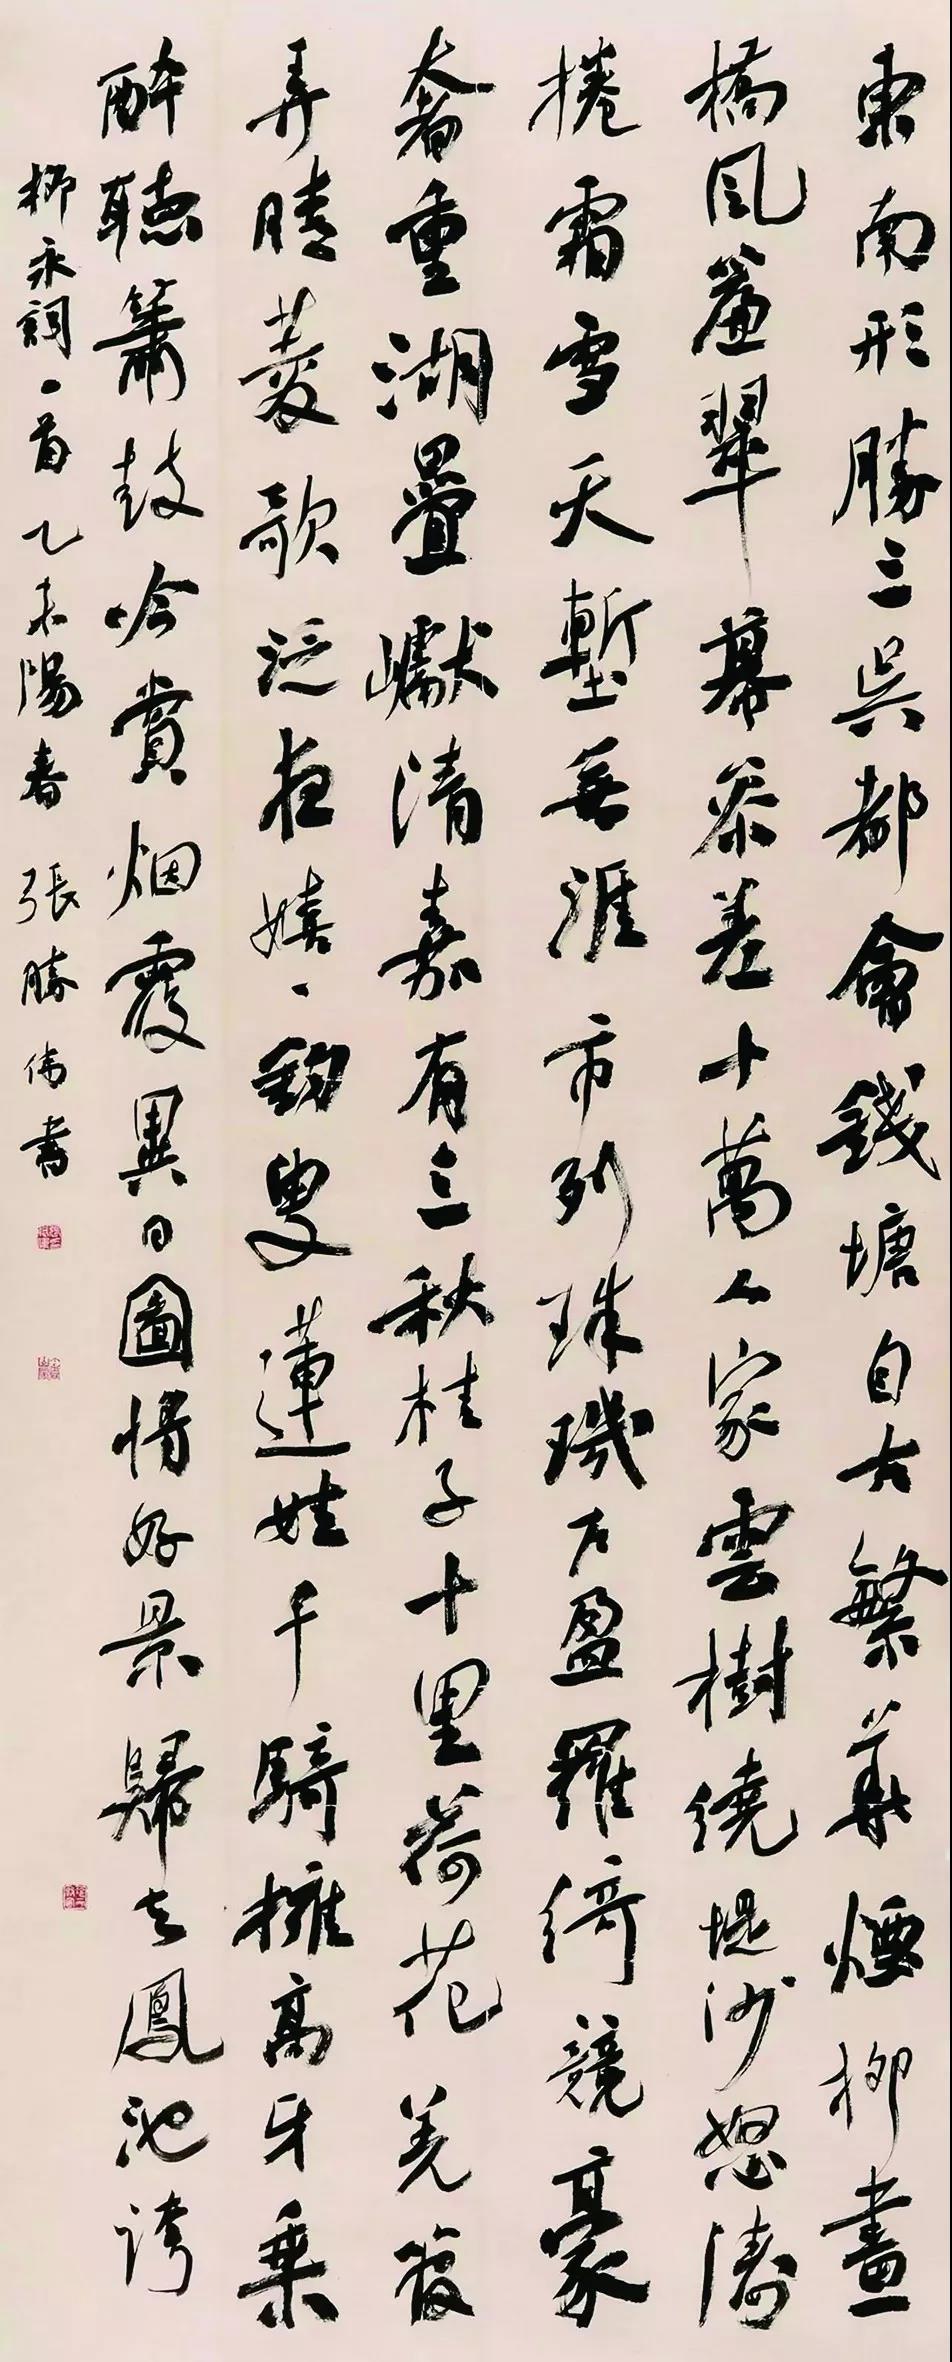 東南形勝三吳都會錢塘自古繁華煙柳畫
橋風簾翠幕參差十萬人家雲樹繞堤沙怒濤
捲霜雪天塹無涯市列珠璣戶盈羅綺競豪
奢重湖疊巘清嘉有三秋桂子十里荷花羌管
弄晴菱歌泛夜嬉々釣叟蓮娃千騎擁高牙乘
醉聽簫鼓吟賞烟霞異日圖將好景歸去鳳池誇
柳永詞一首 乙未陽春 張勝偉書